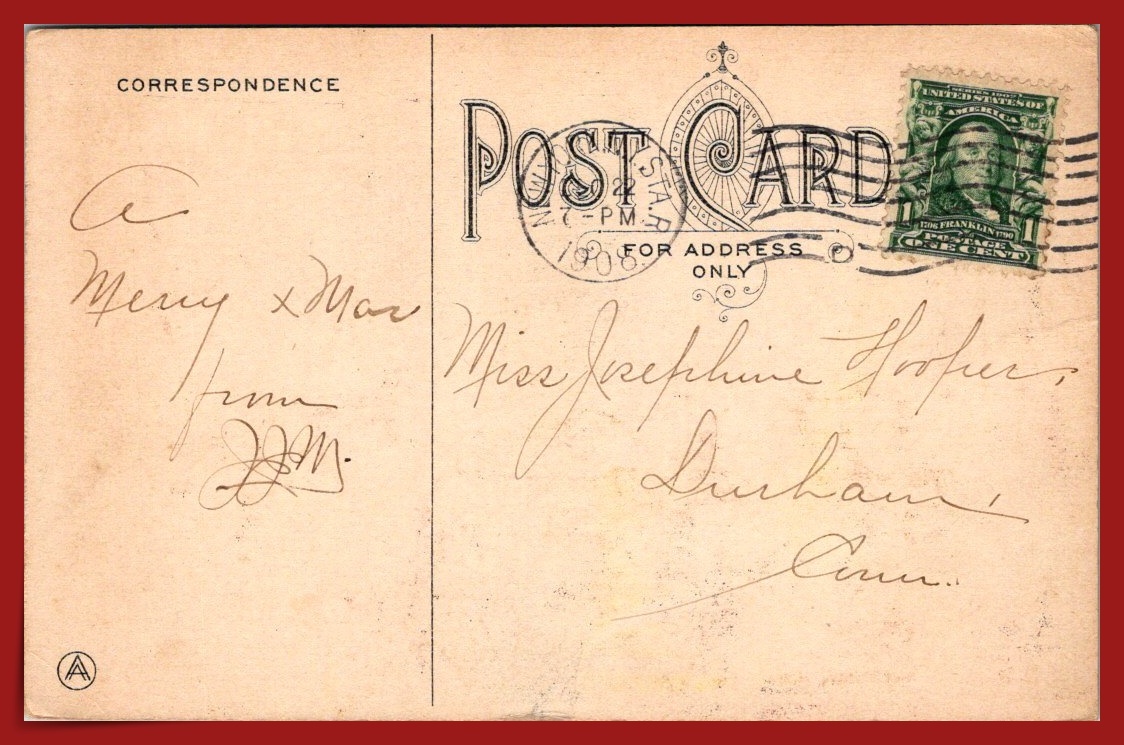 CORRESPONDENCE
POST CARD
FOR ADDRESS
ONLY
SERIES 1902
UNITED STATES OF
AMERICA
1 1706 FRANKLIN 1790 1
POSTAGE
ONE CENT
STA. R
22
7-PM
1908
A
Merry xMas
from
Miss Josephine Hooper,
Durham,
Conn.